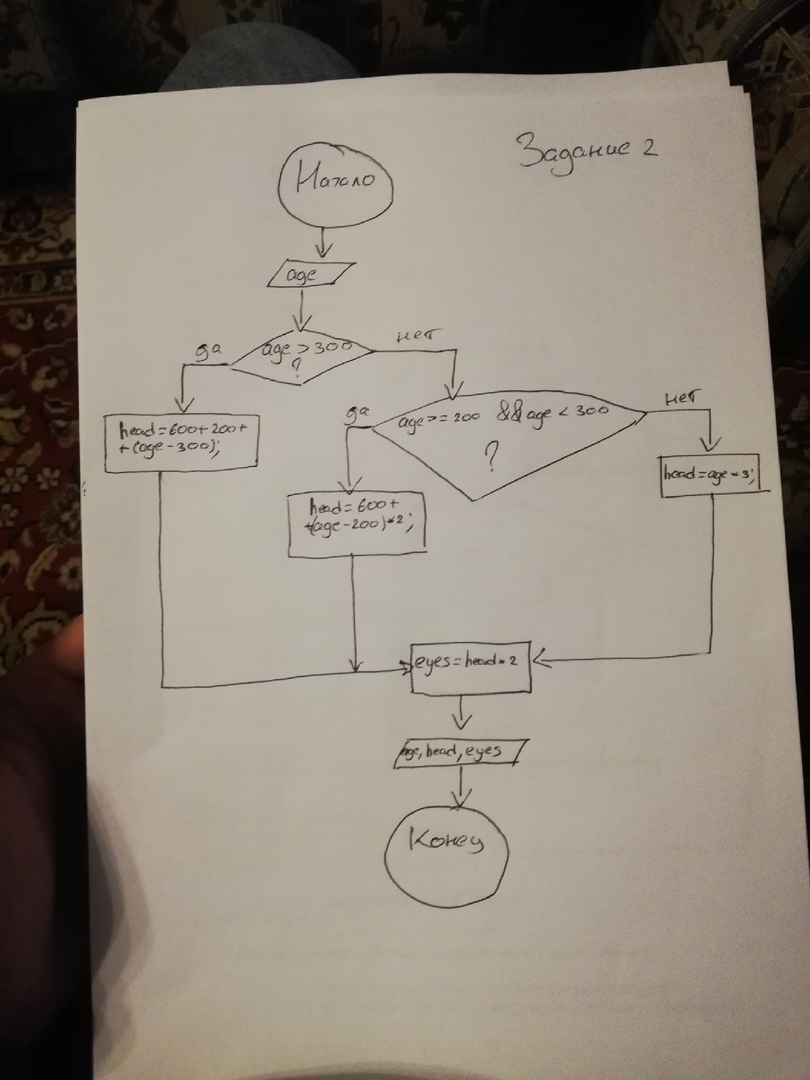 Задание 2
Начало
age
age > 300
?
да
нет
head = 600 + 200 +
+ (age - 300);
да
age >= 200 && age < 300
?
нет
head = 600 +
+(age - 200) * 2;
head = age * 3;
eyes = head * 2
age, head, eyes
Конец